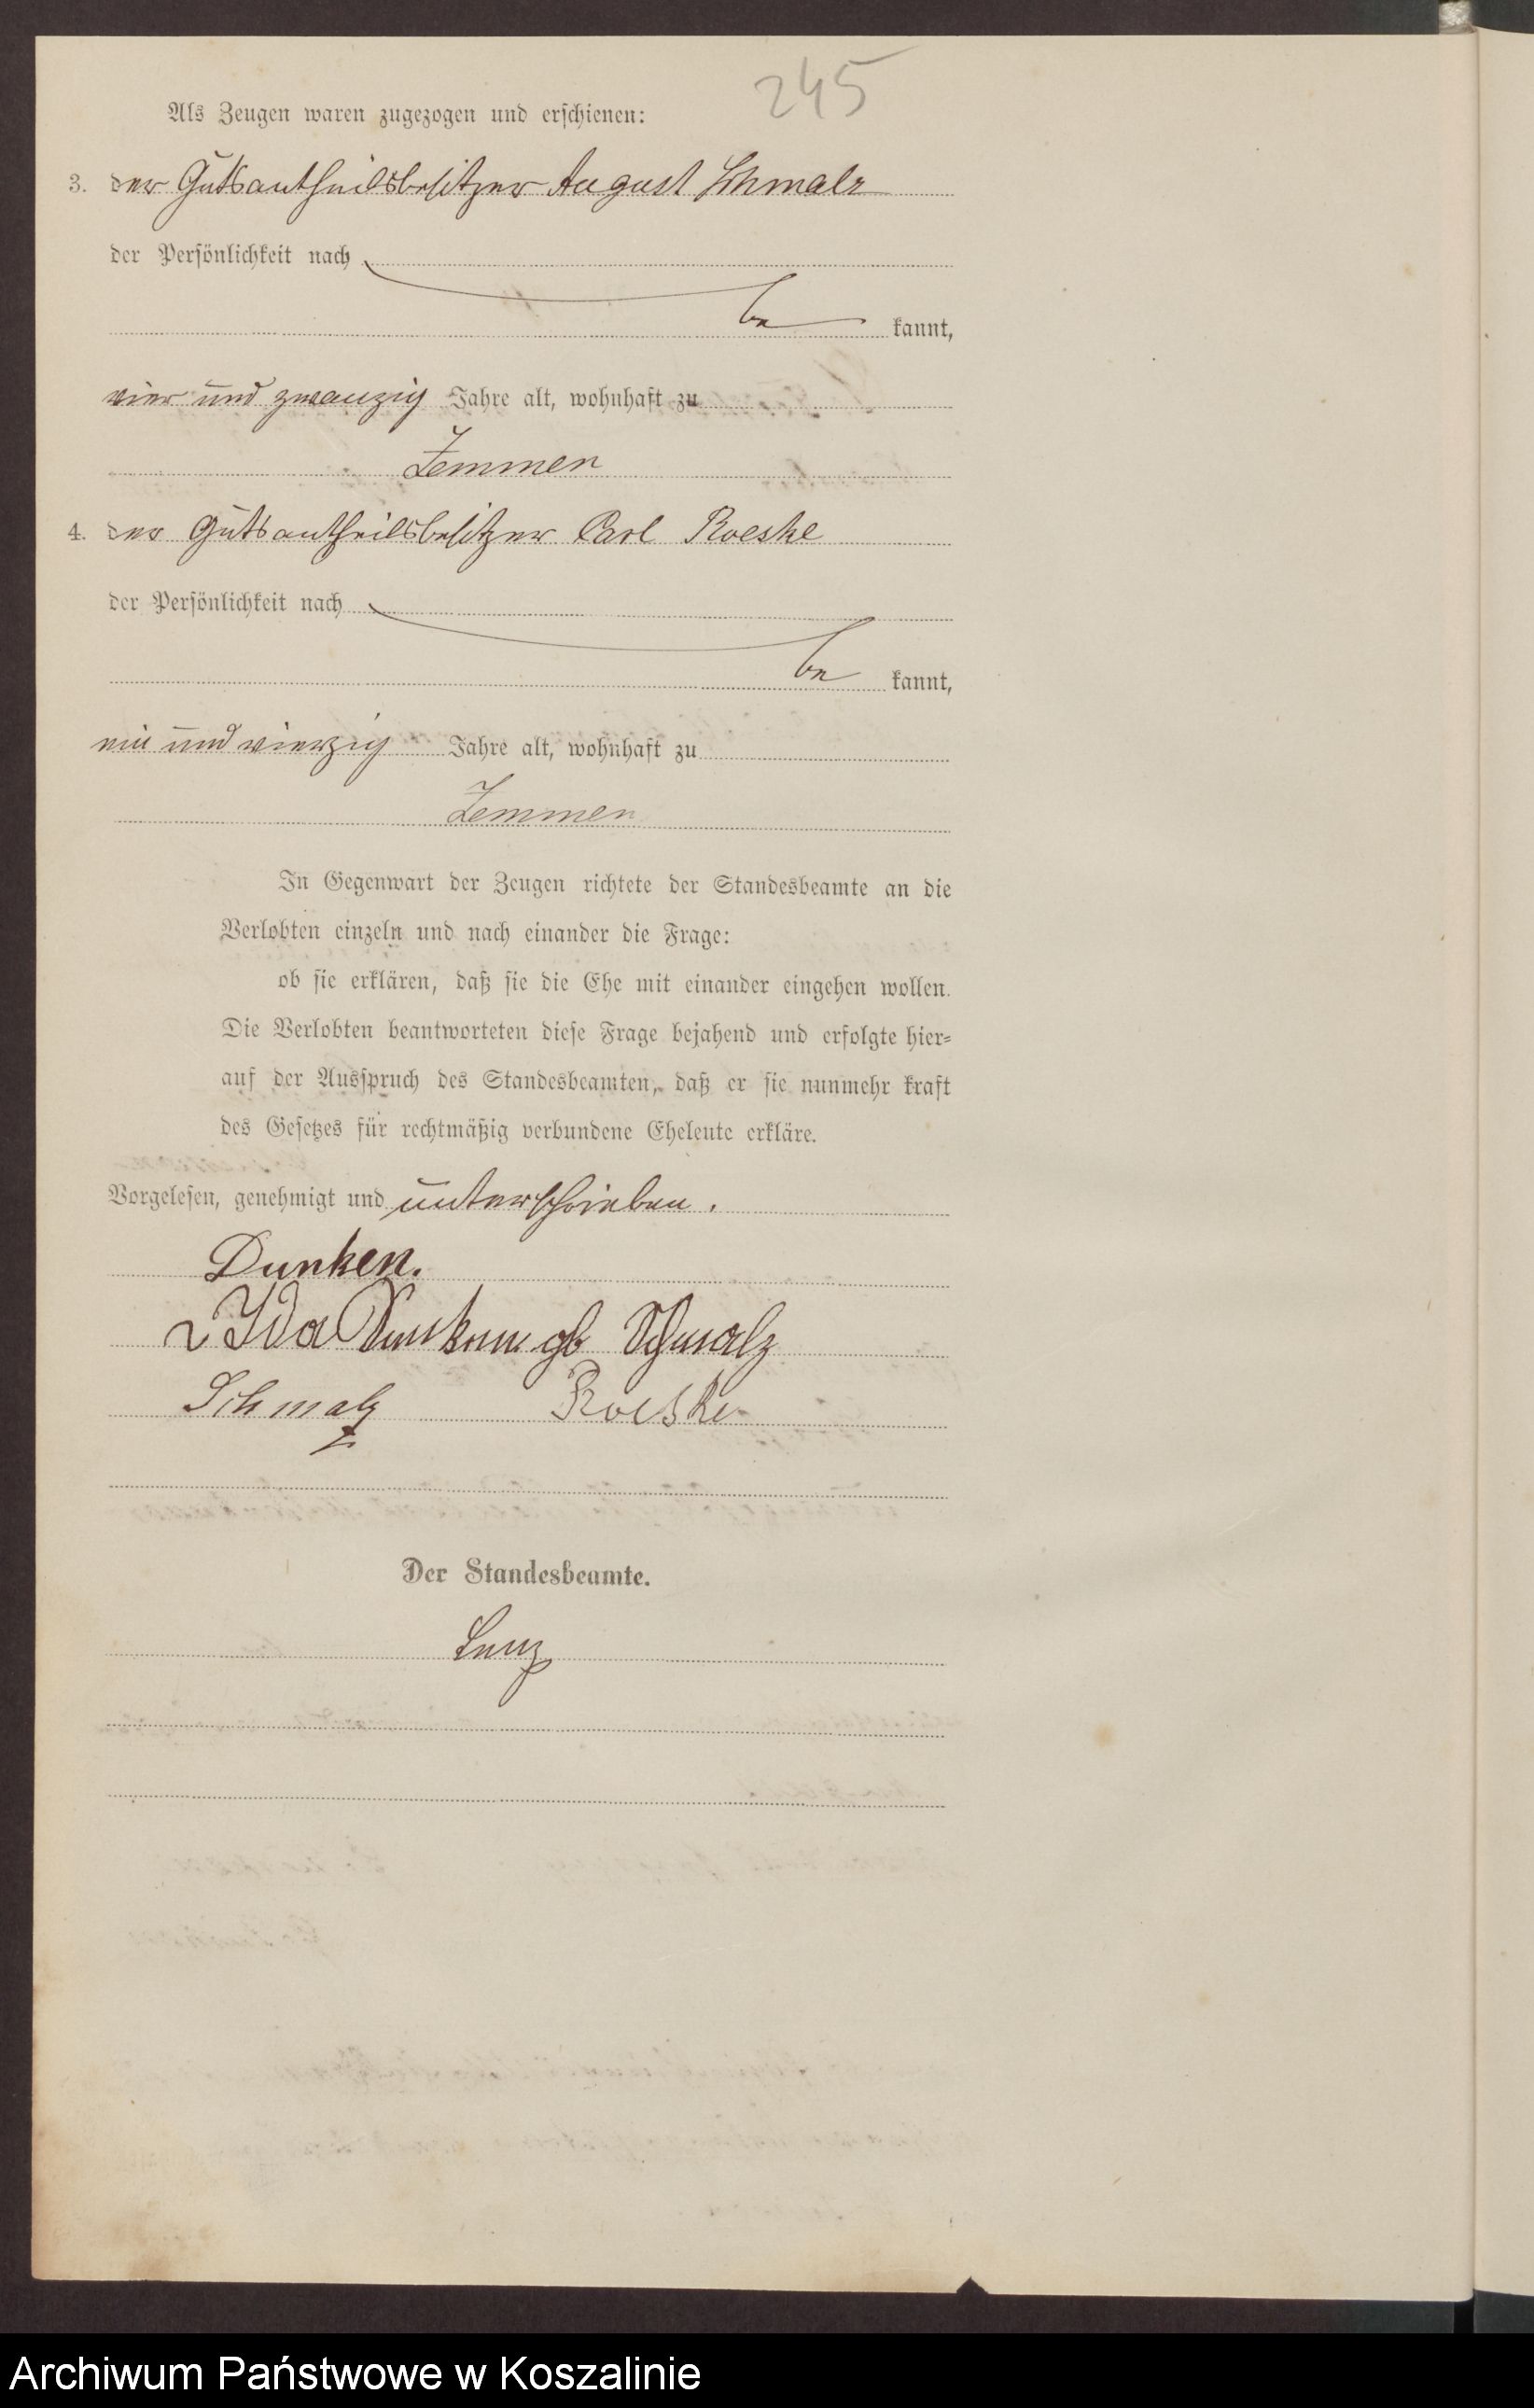 245
Als Zeugen waren zugezogen und erschienen:
3. der Gutsantheilsbesitzer August Schmalz
der Persönlichkeit nach
be kannt,
vier und zwanzig Jahre alt, wohnhaft zu
Zemmen
4. der Gutsantheilsbesitzer Carl Roeske
der Persönlichkeit nach
be kannt,
ein und vierzig Jahre alt, wohnhaft zu
Zemmen
In Gegenwart der Zeugen richtete der Standesbeamte an die
Verlobten einzeln und nach einander die Frage:
ob sie erklären, daß sie die Ehe mit einander eingehen wollen.
Die Verlobten beantworteten diese Frage bejahend und erfolgte hier-
auf der Ausspruch des Standesbeamten, daß er sie nunmehr kraft
des Gesetzes für rechtmäßig verbundene Eheleute erkläre.
Vorgelesen, genehmigt und unterschrieben.
Dunken.
Ida Dunken gb Schmalz
Schmalz Roeske
Der Standesbeamte.
Lenz
Archiwum Państwowe w Koszalinie